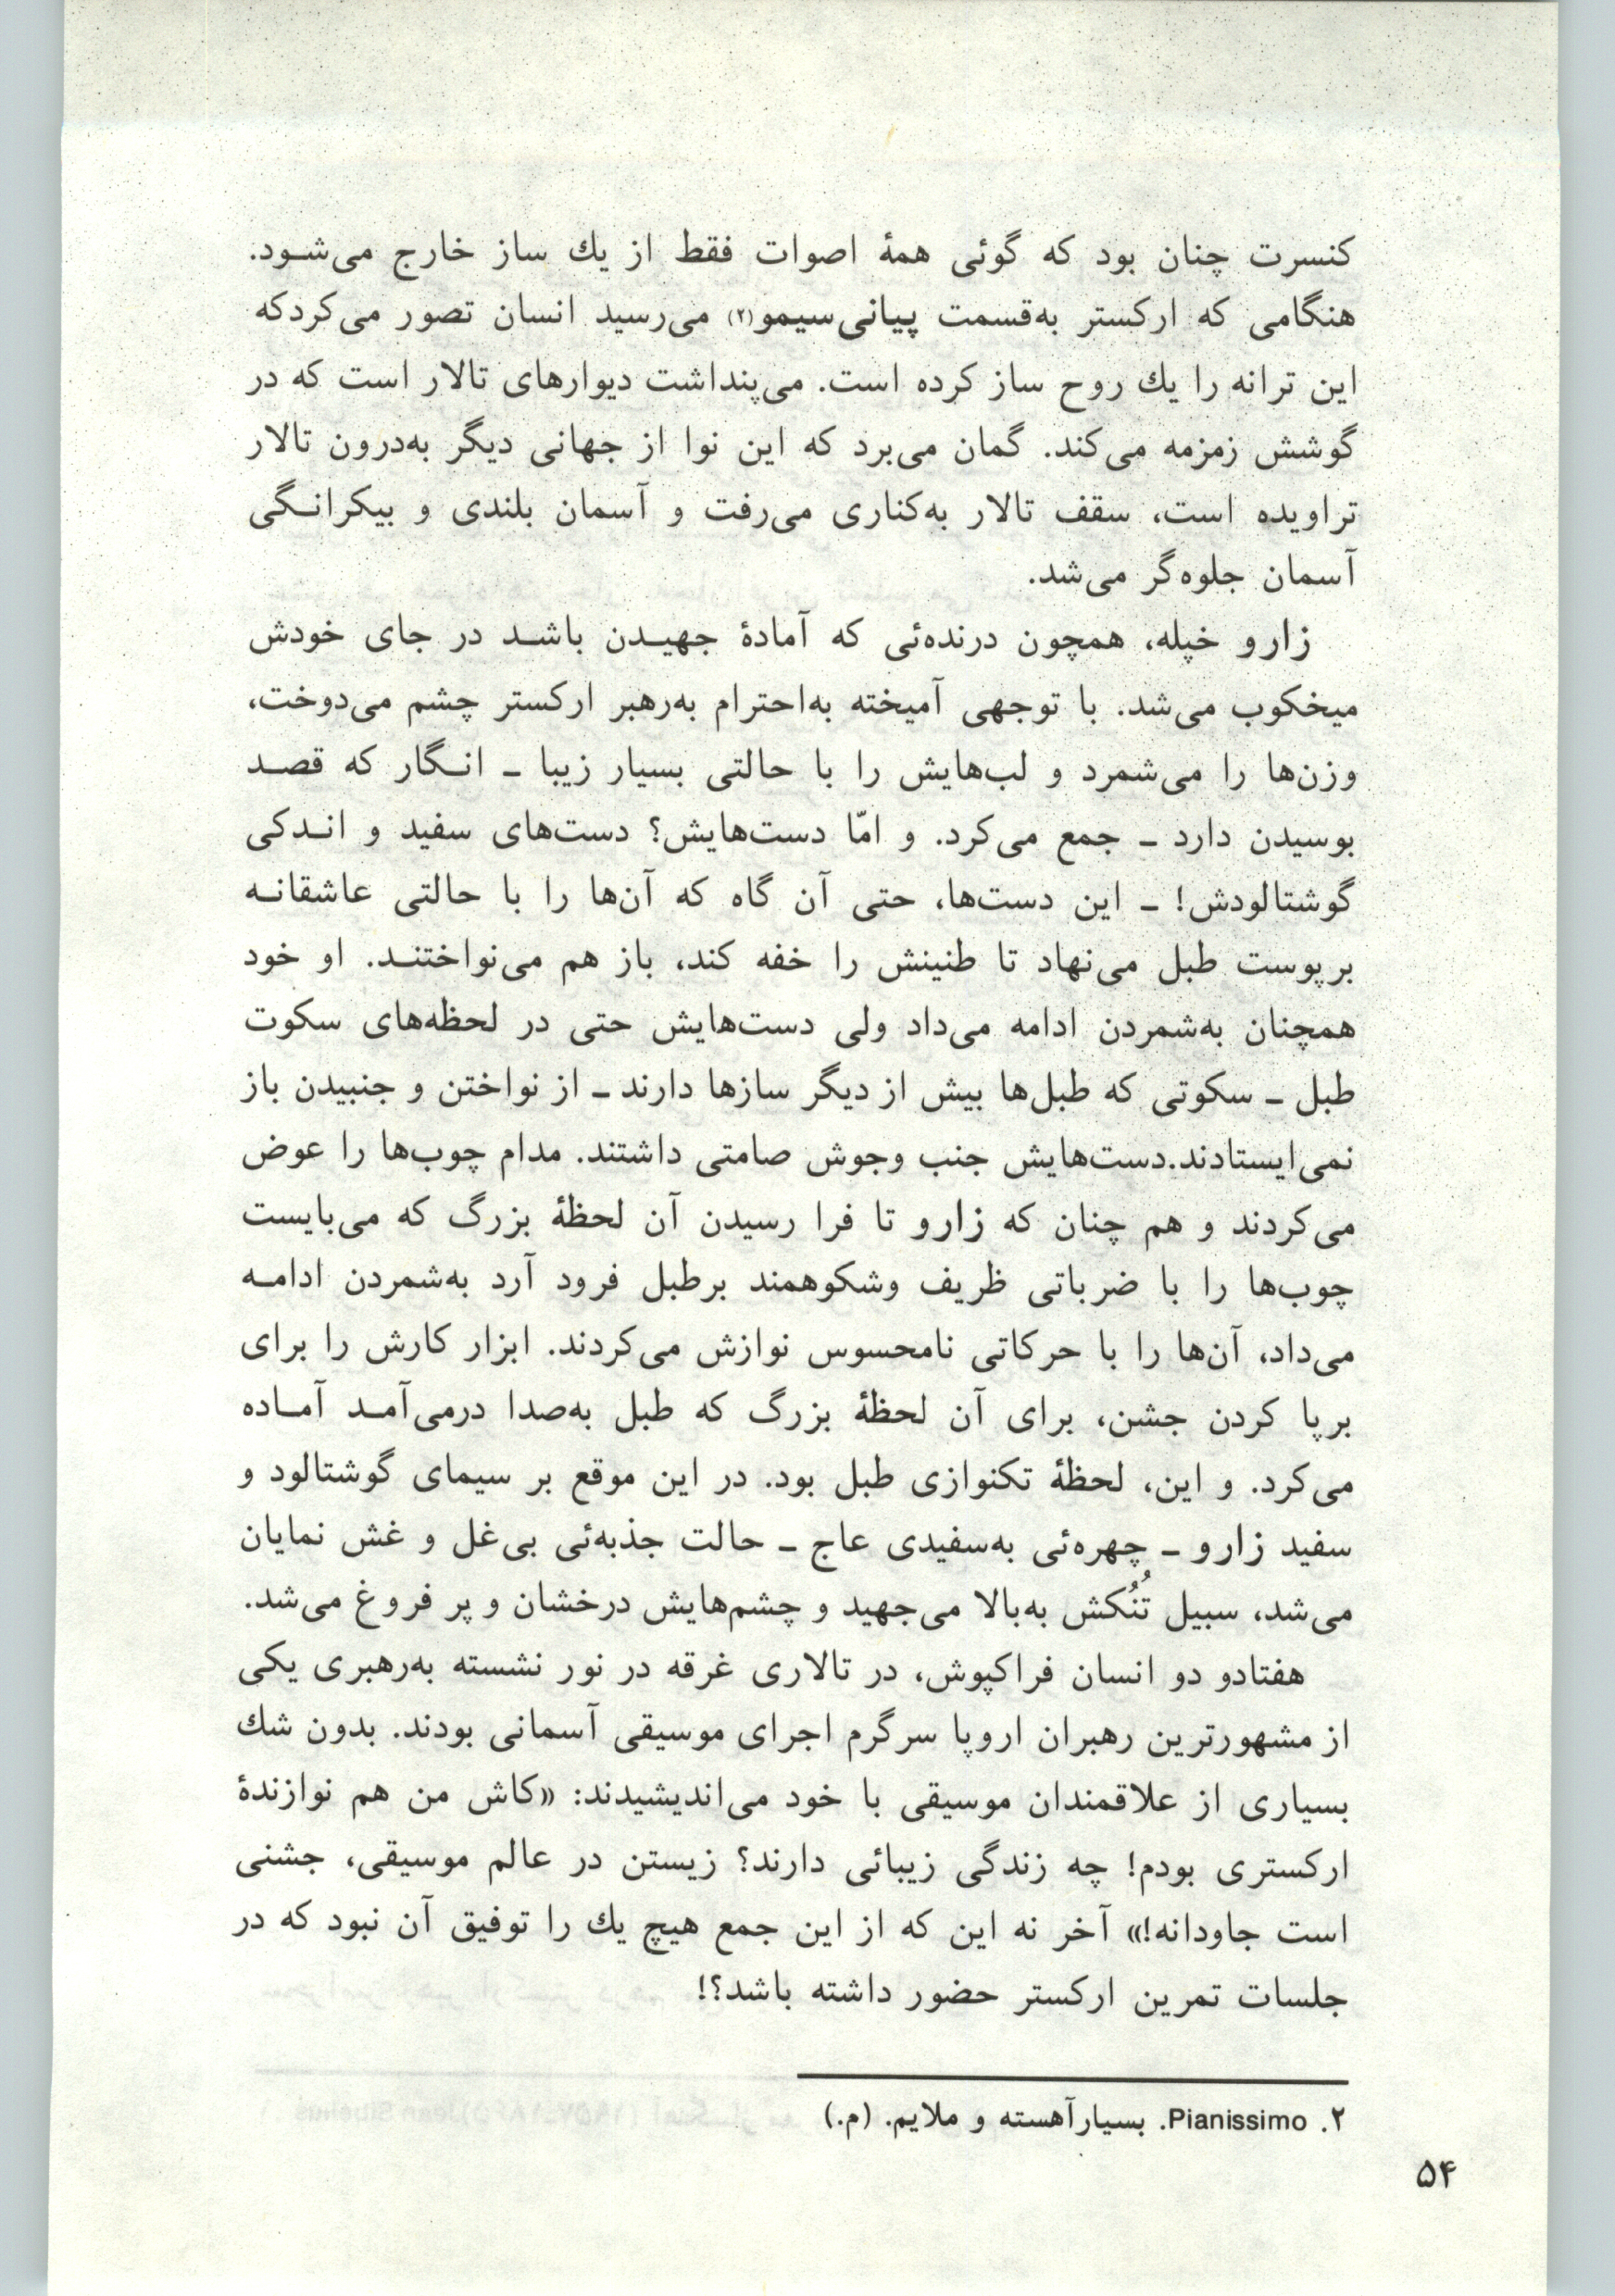 کنسرت چنان بود که گوئی همهٔ اصوات فقط از یك ساز خارج می‌شود.
هنگامی که ارکستر به‌قسمت پیانی‌سیمو(۲) می‌رسید انسان تصور می‌کردکه
این ترانه را یك روح ساز کرده است. می‌پنداشت دیوارهای تالار است که در
گوشش زمزمه می‌کند. گمان می‌برد که این نوا از جهانی دیگر به‌درون تالار
تراویده است، سقف تالار به‌کناری می‌رفت و آسمان بلندی و بیکرانگی
آسمان جلوه‌گر می‌شد.
زارو خپله، همچون درنده‌ئی که آمادهٔ جهیدن باشد در جای خودش
میخکوب می‌شد. با توجهی آمیخته به‌احترام به‌رهبر ارکستر چشم می‌دوخت،
وزن‌ها را می‌شمرد و لب‌هایش را با حالتی بسیار زیبا ـ انگار که قصد
بوسیدن دارد ـ جمع می‌کرد. و امّا دست‌هایش؟ دست‌های سفید و اندکی
گوشتالودش! ـ این دست‌ها، حتی آن گاه که آن‌ها را با حالتی عاشقانه
برپوست طبل می‌نهاد تا طنینش را خفه کند، باز هم می‌نواختند. او خود
همچنان به‌شمردن ادامه می‌داد ولی دست‌هایش حتی در لحظه‌های سکوت
طبل ـ سکوتی که طبل‌ها بیش از دیگر سازها دارند ـ از نواختن و جنبیدن باز
نمی‌ایستادند.دست‌هایش جنب وجوش صامتی داشتند. مدام چوب‌ها را عوض
می‌کردند و هم چنان که زارو تا فرا رسیدن آن لحظهٔ بزرگ که می‌بایست
چوب‌ها را با ضرباتی ظریف وشکوهمند برطبل فرود آرد به‌شمردن ادامه
می‌داد، آن‌ها را با حرکاتی نامحسوس نوازش می‌کردند. ابزار کارش را برای
برپا کردن جشن، برای آن لحظهٔ بزرگ که طبل به‌صدا درمی‌آمد آماده
می‌کرد. و این، لحظهٔ تکنوازی طبل بود. در این موقع بر سیمای گوشتالود و
سفید زارو ـ چهره‌ئی به‌سفیدی عاج ـ حالت جذبه‌ئی بی‌غل و غش نمایان
می‌شد، سبیل تُنُکش به‌بالا می‌جهید و چشم‌هایش درخشان و پر فروغ می‌شد.
هفتادو دو انسان فراکپوش، در تالاری غرقه در نور نشسته به‌رهبری یکی
از مشهورترین رهبران اروپا سرگرم اجرای موسیقی آسمانی بودند. بدون شك
بسیاری از علاقمندان موسیقی با خود می‌اندیشیدند: «کاش من هم نوازندهٔ
ارکستری بودم! چه زندگی زیبائی دارند؟ زیستن در عالم موسیقی، جشنی
است جاودانه!» آخر نه این که از این جمع هیچ یك را توفیق آن نبود که در
جلسات تمرین ارکستر حضور داشته باشد؟!
۲. Pianissimo. بسیارآهسته و ملایم. (م.)
۵۴